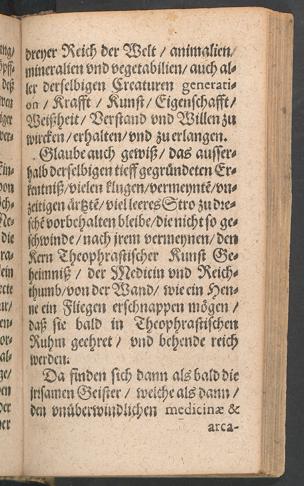 dreyer Reich der Welt / animalien/
mineralien vnd vegetabilien/ auch al-
ler derselbigen Creaturen generati-
on / Krafft / Kunst / Eigenschafft /
Weißheit / Verstand vnd Willen zu
wircken / erhalten / vnd zu erlangen.
Glaube auch gewiß / das ausser-
halb derselbigen tieff gegründeten Er-
kentniß / vielen klugen / vermeyntē / vn-
zeitigen ärtztē / viel leeres Stro zu dre-
schē vorbehalten bleibe / die nicht so ge-
schwinde / nach jrem vermeynen / den
Kern Theophrastischer Kunst Ge-
heimniß / der Medicin vnd Reich-
thumb / von der Wand / wie ein Hen-
ne ein Fliegen erschnappen mögen /
daß sie bald in Theophrastischen
Ruhm geehret / vnd behende reich
werden.
Da finden sich dann als bald die
jrrsamen Geister / welche als dann /
den vnüberwindlichen medicinæ &
arca-